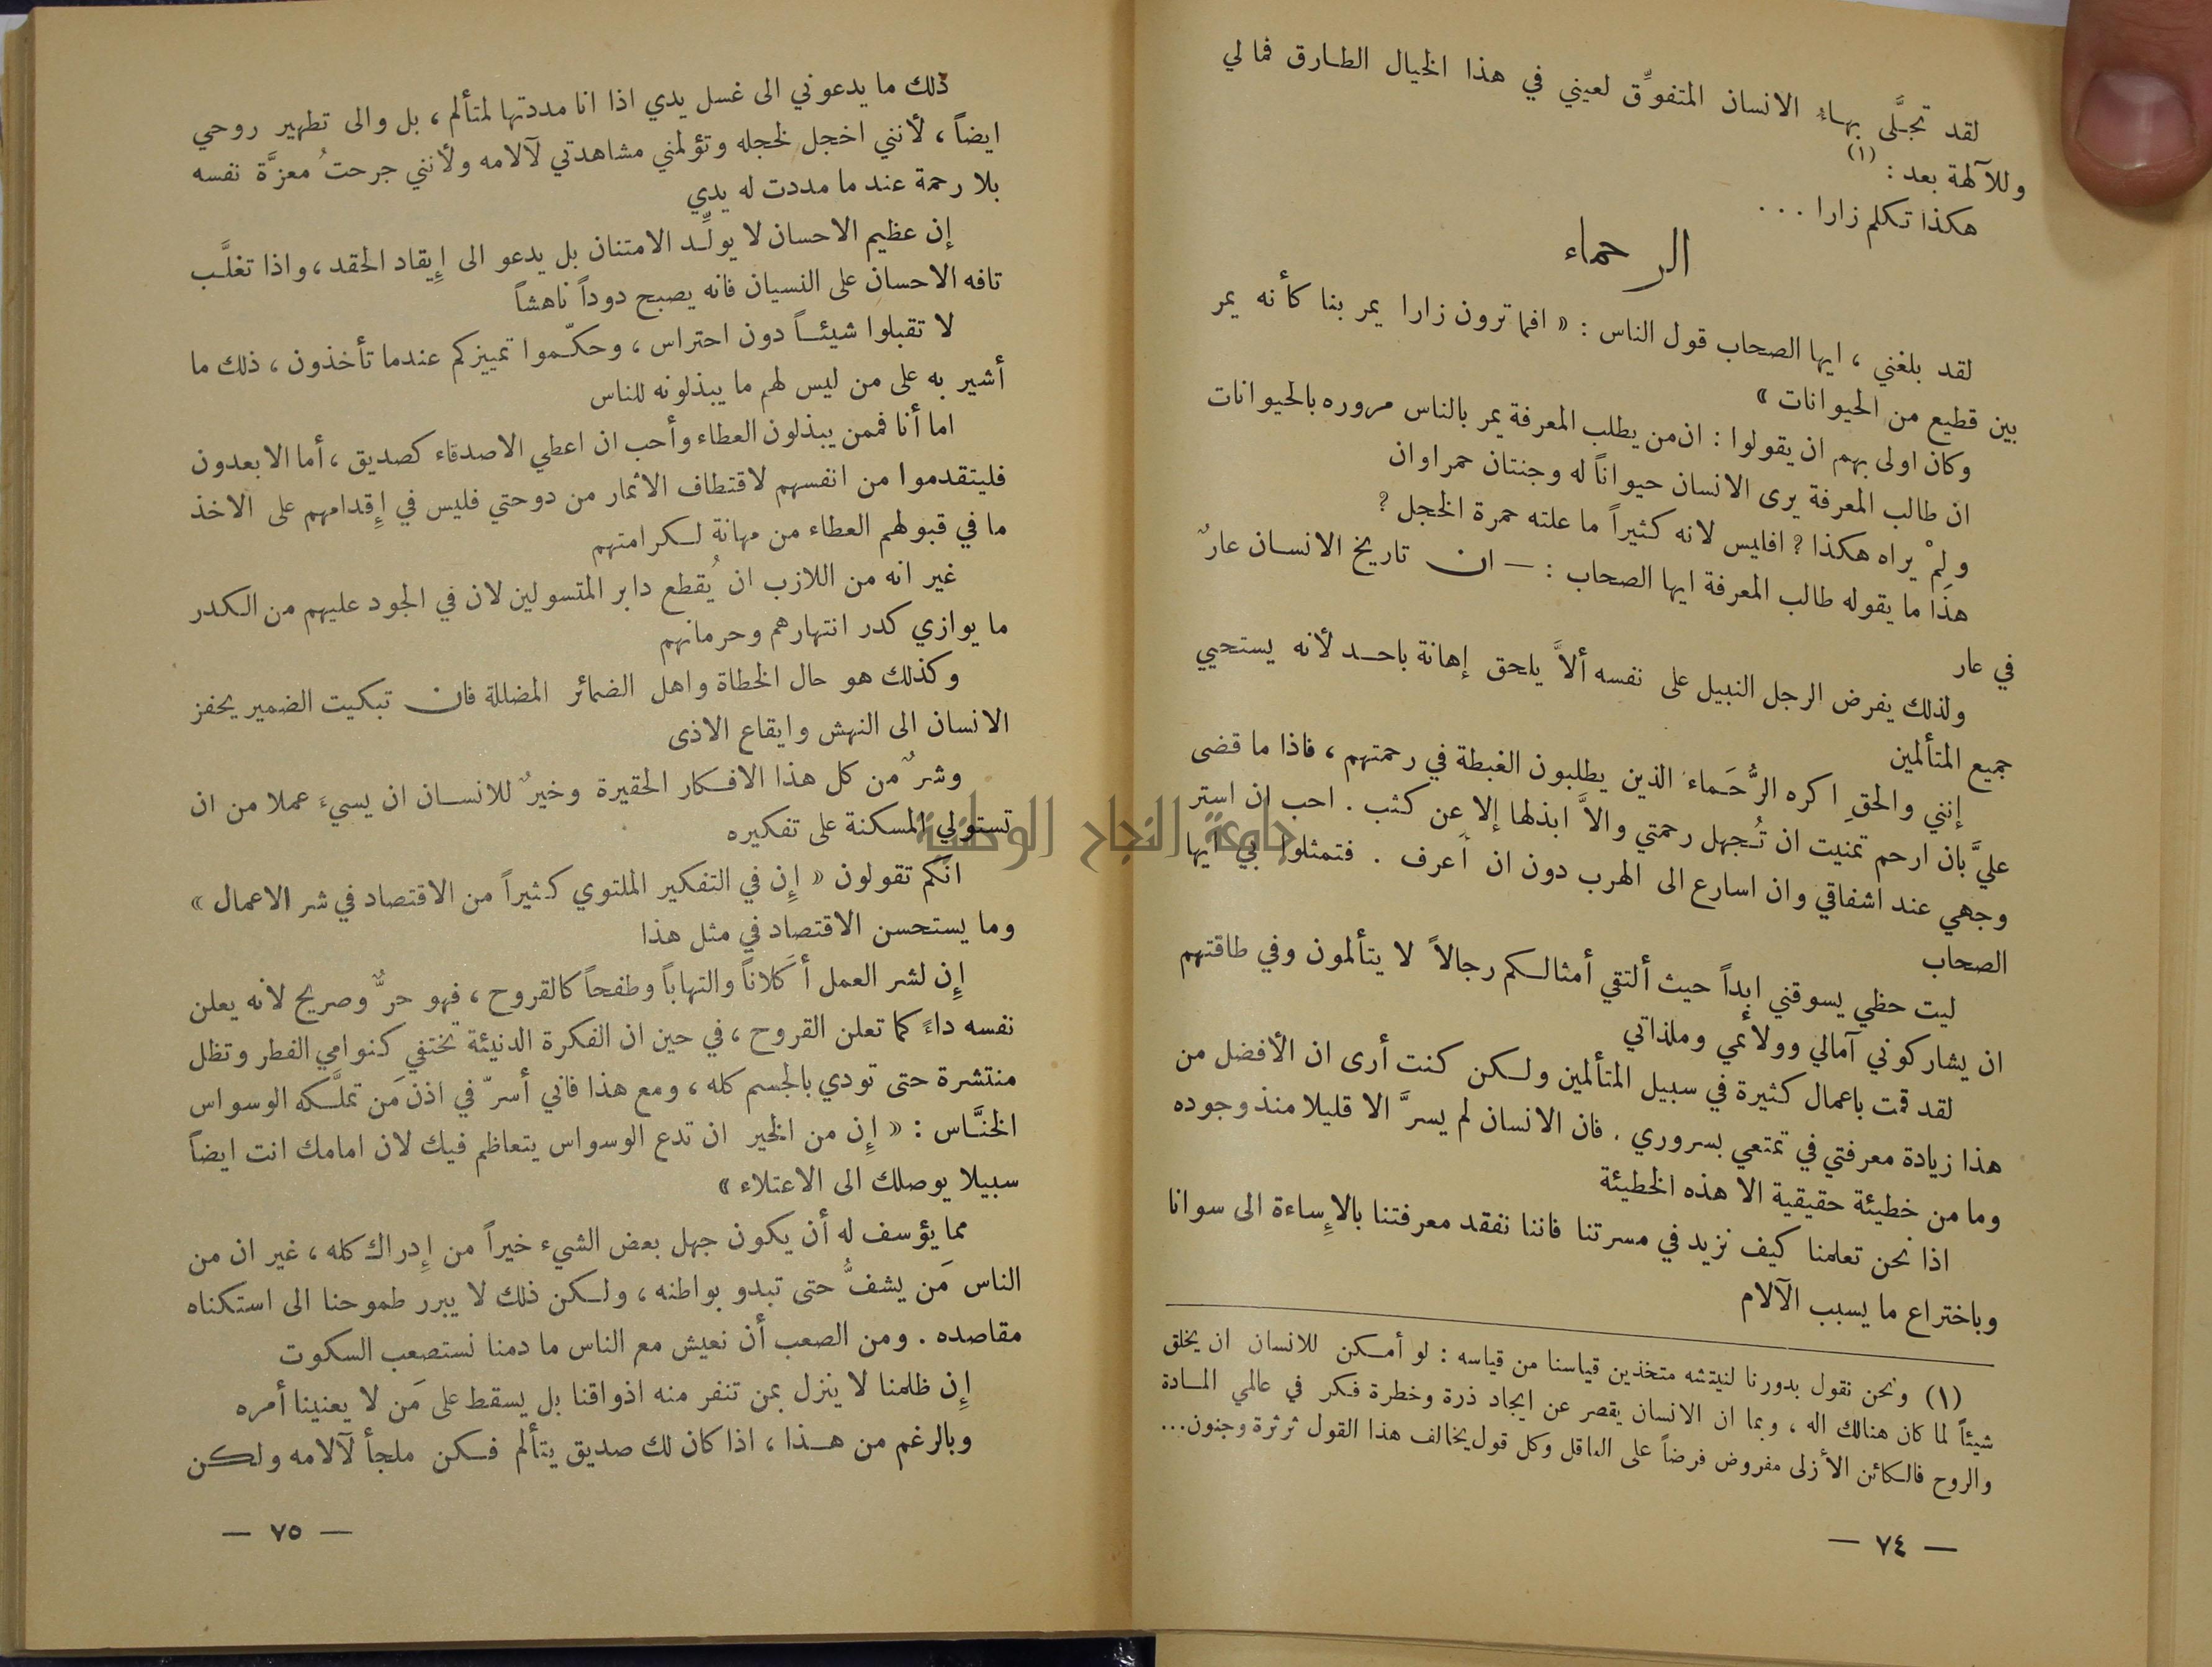 لقد تجلَّى بهاءُ الانسان المتفوِّق لعيني في هذا الخيال الطارق فما لي
وللآلهة بعد : (١)
هكذا تكلم زارا . . .
الرحماء
لقد بلغني ، ايها الصحاب قول الناس : « افما ترون زارا يمر بنا كأنه يمر
بين قطيع من الحيوانات »
وكان اولى بهم ان يقولوا : ان من يطلب المعرفة يمر بالناس مروره بالحيوانات
ان طالب المعرفة يرى الانسان حيواناً له وجنتان حمراوان
ولِمْ يراه هكذا ? افليس لانه كثيراً ما علته حمرة الخجل ?
هذا ما يقوله طالب المعرفة ايها الصحاب : — ان تاريخ الانسان عارٌ
في عار
ولذلك يفرض الرجل النبيل على نفسه ألاَّ يلحق إهانة باحد لأنه يستحيي
جميع المتألمين
إنني والحقِ اكره الرُّحَماءَ الذين يطلبون الغبطة في رحمتهم ، فاذا ما قضى
عليَّ بان ارحم تمنيت ان تُجهل رحمتي والاَّ ابذلها إلا عن كثب . احب ان استر
وجهي عند اشفاقي وان اسارع الى الهرب دون ان أعرف . فتمثلوا بي ايها
الصحاب
ليت حظي يسوقني ابداً حيث ألتقي أمثالكم رجالاً لا يتألمون وفي طاقتهم
ان يشاركوني آمالي وولائمي وملذاتي
لقد قمت باعمال كثيرة في سبيل المتألمين ولكن كنت أرى ان الأفضل من
هذا زيادة معرفتي في تمتعي بسروري . فان الانسان لم يسرَّ الا قليلا منذ وجوده
وما من خطيئة حقيقية الا هذه الخطيئة
اذا نحن تعلمنا كيف نزيد في مسرتنا فاننا نفقد معرفتنا بالإساءة الى سوانا
وباختراع ما يسبب الآلام
(١) ونحن نقول بدورنا لنيتشه متخذين قياسنا من قياسه : لو أمكن للانسان ان يخلق
شيئاً لما كان هنالك اله ، وبما ان الانسان يقصر عن ايجاد ذرة وخطرة فكر في عالمي المادة
والروح فالكائن الأزلى مفروض فرضاً على العاقل وكل قول يخالف هذا القول ثرثرة وجنون...
— ٧٤ —
ذلك ما يدعوني الى غسل يدي اذا انا مددتها لمتألم ، بل والى تطهير روحي
ايضاً ، لأنني اخجل لخجله وتؤلمني مشاهدتي لآلامه ولأنني جرحتُ معزَّة نفسه
بلا رحمة عند ما مددت له يدي
إن عظيم الاحسان لا يولّد الامتنان بل يدعو الى إيقاد الحقد ، واذا تغلَّب
تافه الاحسان على النسيان فانه يصبح دوداً ناهشاً
لا تقبلوا شيئاً دون احتراس ، وحكّموا تمييزكم عندما تأخذون ، ذلك ما
أشير به على من ليس لهم ما يبذلونه للناس
اما أنا فممن يبذلون العطاء وأحب ان اعطي الاصدقاء كصديق ، أما الابعدون
فليتقدموا من انفسهم لاقتطاف الاثمار من دوحتي فليس في إقدامهم على الاخذ
ما في قبولهم العطاء من مهانة لكرامتهم
غير انه من اللازب ان يُقطع دابر المتسولين لان في الجود عليهم من الكدر
ما يوازي كدر انتهارهم وحرمانهم
وكذلك هو حال الخطاة واهل الضمائر المضللة فان تبكيت الضمير يحفز
الانسان الى النهش وايقاع الاذى
وشرٌ من كل هذا الافكار الحقيرة وخيرٌ للانسان ان يسيءَ عملا من ان
تستولي المسكنة على تفكيره
انكم تقولون « إن في التفكير الملتوي كثيراً من الاقتصاد في شر الاعمال »
وما يستحسن الاقتصاد في مثل هذا
إن لشر العمل أكَلاناً والتهاباً وطفحاً كالقروح ، فهو حرٌّ وصريح لانه يعلن
نفسه داءً كما تعلن القروح ، في حين ان الفكرة الدنيئة تختفي كنوامي الفطر وتظل
منتشرة حتى تودي بالجسم كله ، ومع هذا فاني أسرّ في اذن مَن تملَّكه الوسواس
الخنَّاس : « إن من الخير ان تدع الوسواس يتعاظم فيك لان امامك انت ايضاً
سبيلا يوصلك الى الاعتلاء »
مما يؤسف له أن يكون جهل بعض الشيء خيراً من إدراك كله ، غير ان من
الناس مَن يشفُّ حتى تبدو بواطنه ، ولكن ذلك لا يبرر طموحنا الى استكناه
مقاصده . ومن الصعب أن نعيش مع الناس ما دمنا نستصعب السكوت
إن ظلمنا لا ينزل بمن تنفر منه اذواقنا بل يسقط على مَن لا يعنينا أمره
وبالرغم من هذا ، اذا كان لك صديق يتألم فكن ملجأ لآلامه ولكن
— ٧٥ —
جامعة النجاح الوطنية